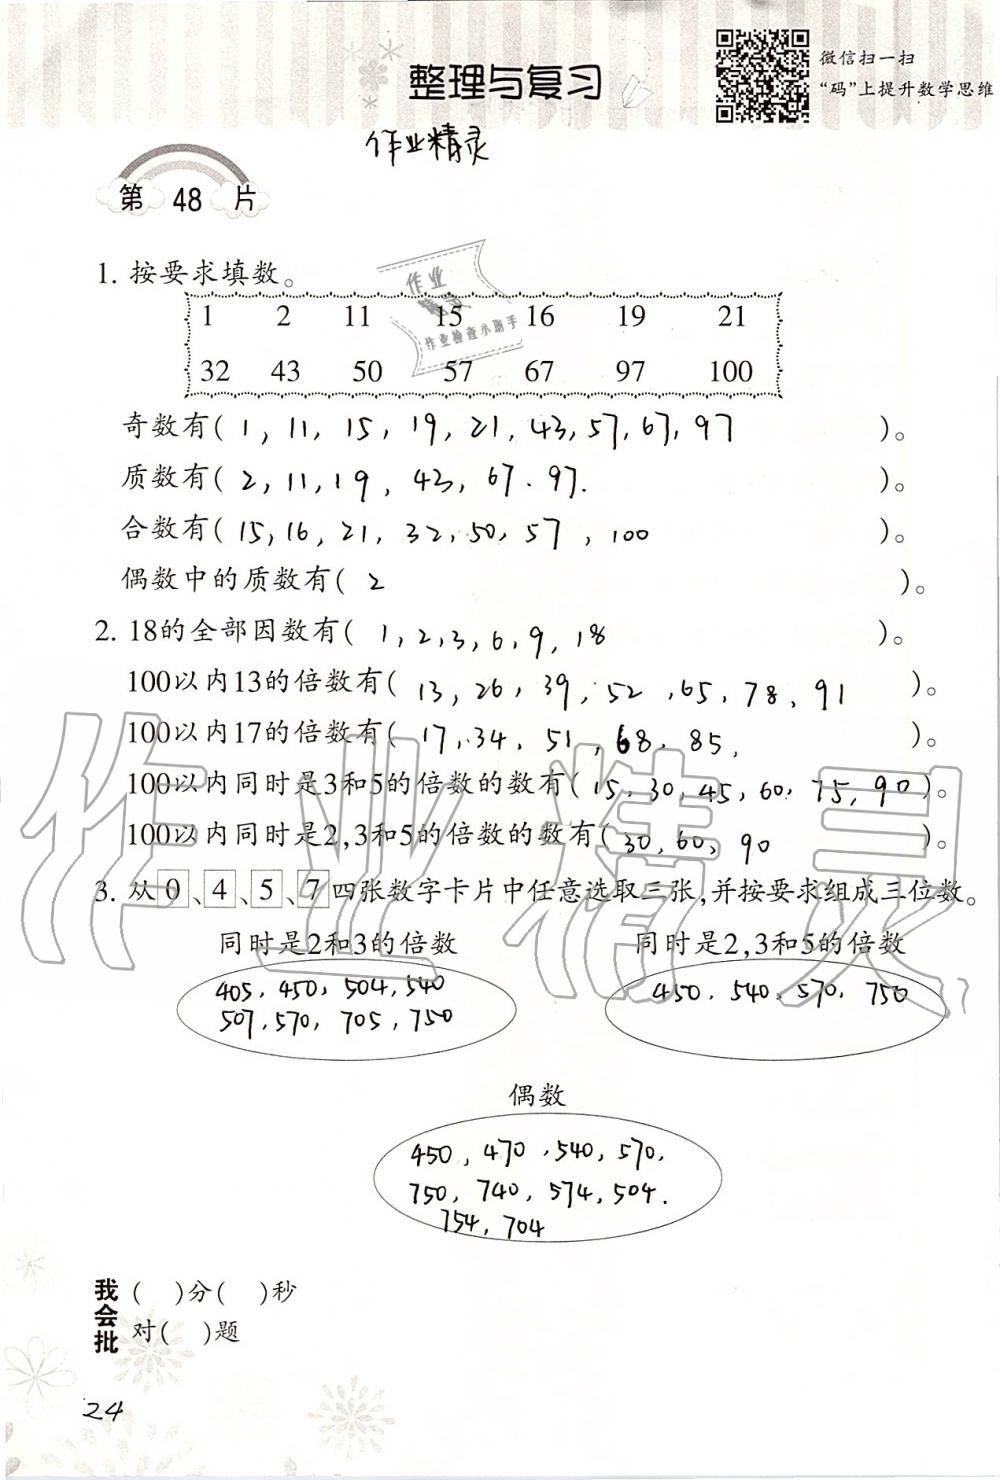 整理与复习
微信扫一扫
“码”上提升数学思维
作业精灵
第 48 片
1. 按要求填数。
作业
作业检查小助手
1 2 11 15 16 19 21
32 43 50 57 67 97 100
奇数有( 1, 11, 15, 19, 21, 43, 57, 67, 97 )。
质数有( 2, 11, 19, 43, 67. 97. )。
合数有( 15, 16, 21, 32, 50, 57, 100 )。
偶数中的质数有( 2 )。
2. 18的全部因数有( 1, 2, 3, 6, 9, 18 )。
100以内13的倍数有( 13, 26, 39, 52, 65, 78, 91 )。
100以内17的倍数有( 17, 34, 51, 68, 85, )。
100以内同时是3和5的倍数的数有( 15, 30, 45, 60, 75, 90 )。
100以内同时是2,3和5的倍数的数有( 30, 60, 90 )。
3. 从0、4、5、7四张数字卡片中任意选取三张,并按要求组成三位数。
同时是2和3的倍数 同时是2,3和5的倍数
405, 450, 504, 540
507, 570, 705, 750
450, 540, 570, 750
偶数
450, 470, 540, 570,
750, 740, 574, 504.
754, 704
我会批
( )分( )秒
对( )题
24
作业精灵